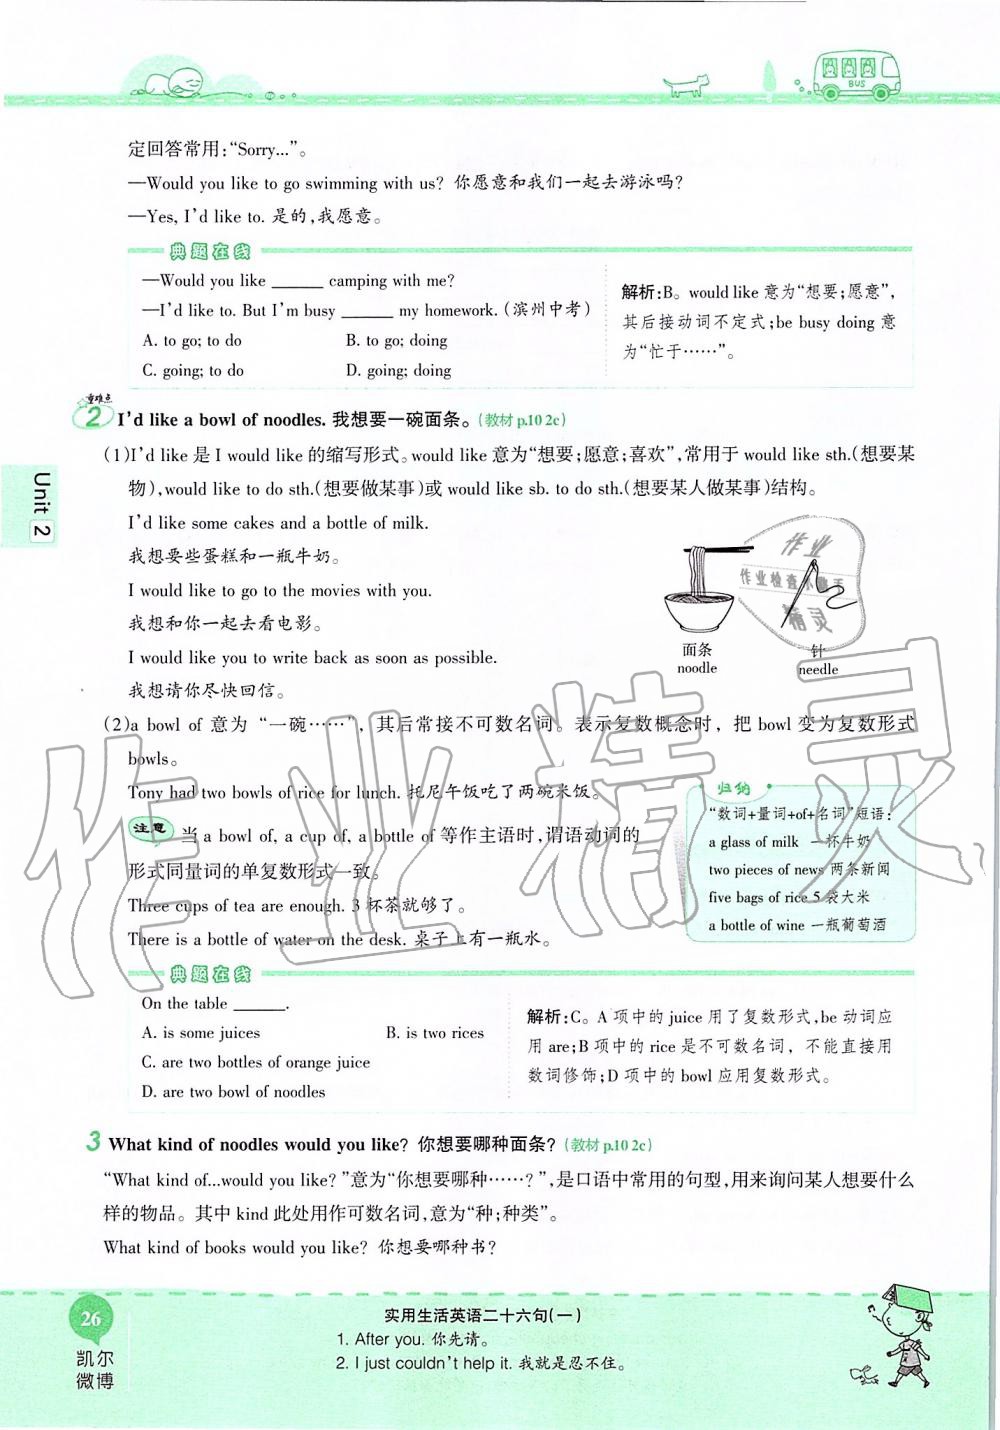 BUS
定回答常用:“Sorry...”。
—Would you like to go swimming with us? 你愿意和我们一起去游泳吗?
—Yes, I'd like to. 是的,我愿意。
典题在线
—Would you like ______ camping with me?
—I'd like to. But I'm busy ______ my homework.(滨州中考)
A. to go; to do B. to go; doing
C. going; to do D. going; doing
解析:B。would like 意为“想要;愿意”,
其后接动词不定式;be busy doing 意
为“忙于……”。
重难点
2 I'd like a bowl of noodles. 我想要一碗面条。(教材 p.10 2c)
(1)I'd like 是 I would like 的缩写形式。would like 意为“想要;愿意;喜欢”,常用于 would like sth.(想要某
物),would like to do sth.(想要做某事)或 would like sb. to do sth.(想要某人做某事)结构。
I'd like some cakes and a bottle of milk.
我想要些蛋糕和一瓶牛奶。
I would like to go to the movies with you.
我想和你一起去看电影。
I would like you to write back as soon as possible.
我想请你尽快回信。
面条
noodle
针
needle
作业
作业检查小助手
精灵
Unit 2
(2)a bowl of 意为“一碗……”,其后常接不可数名词。表示复数概念时,把 bowl 变为复数形式
bowls。
Tony had two bowls of rice for lunch. 托尼午饭吃了两碗米饭。
注意 当 a bowl of, a cup of, a bottle of 等作主语时,谓语动词的
形式同量词的单复数形式一致。
Three cups of tea are enough. 3 杯茶就够了。
There is a bottle of water on the desk. 桌子上有一瓶水。
归纳
“数词+量词+of+名词”短语:
a glass of milk 一杯牛奶
two pieces of news 两条新闻
five bags of rice 5 袋大米
a bottle of wine 一瓶葡萄酒
作业精灵
典题在线
On the table ______.
A. is some juices B. is two rices
C. are two bottles of orange juice
D. are two bowl of noodles
解析:C。A 项中的 juice 用了复数形式,be 动词应
用 are;B 项中的 rice 是不可数名词,不能直接用
数词修饰;D 项中的 bowl 应用复数形式。
3 What kind of noodles would you like? 你想要哪种面条?(教材 p.10 2c)
“What kind of...would you like?”意为“你想要哪种……?”,是口语中常用的句型,用来询问某人想要什么
样的物品。其中 kind 此处用作可数名词,意为“种;种类”。
What kind of books would you like? 你想要哪种书?
26
凯尔
微博
实用生活英语二十六句(一)
1. After you. 你先请。
2. I just couldn't help it. 我就是忍不住。